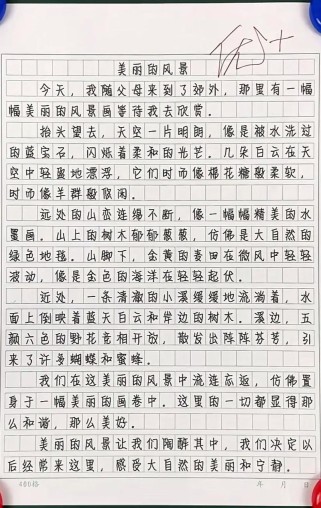 优+
美丽的风景
今天，我随父母来到了郊外，那里有一幅
幅美丽的风景画等待我去欣赏。
抬头望去，天空一片明朗，像是被水洗过
的蓝宝石，闪烁着柔和的光芒。几朵白云在天
空中轻盈地漂浮，它们时而像棉花糖般柔软，
时而像羊群般悠闲。
远处的山峦连绵不断，像一幅幅精美的水
墨画。山上的树木郁郁葱葱，仿佛是大自然的
绿色地毯。山脚下，金黄的麦田在微风中轻轻
波动，像是金色的海洋在轻轻起伏。
近处，一条清澈的小溪缓缓地流淌着，水
面上倒映着蓝天白云和岸边的树木。溪边，五
颜六色的野花竞相开放，散发出阵阵芬芳，引
来了许多蝴蝶和蜜蜂。
我们在这美丽的风景中流连忘返，仿佛置
身于一幅美丽的画卷中。这里的一切都显得那
么和谐，那么美好。
美丽的风景让我们陶醉其中，我们决定以
后经常来这里，感受大自然的美丽和宁静。
400格 年 月 日